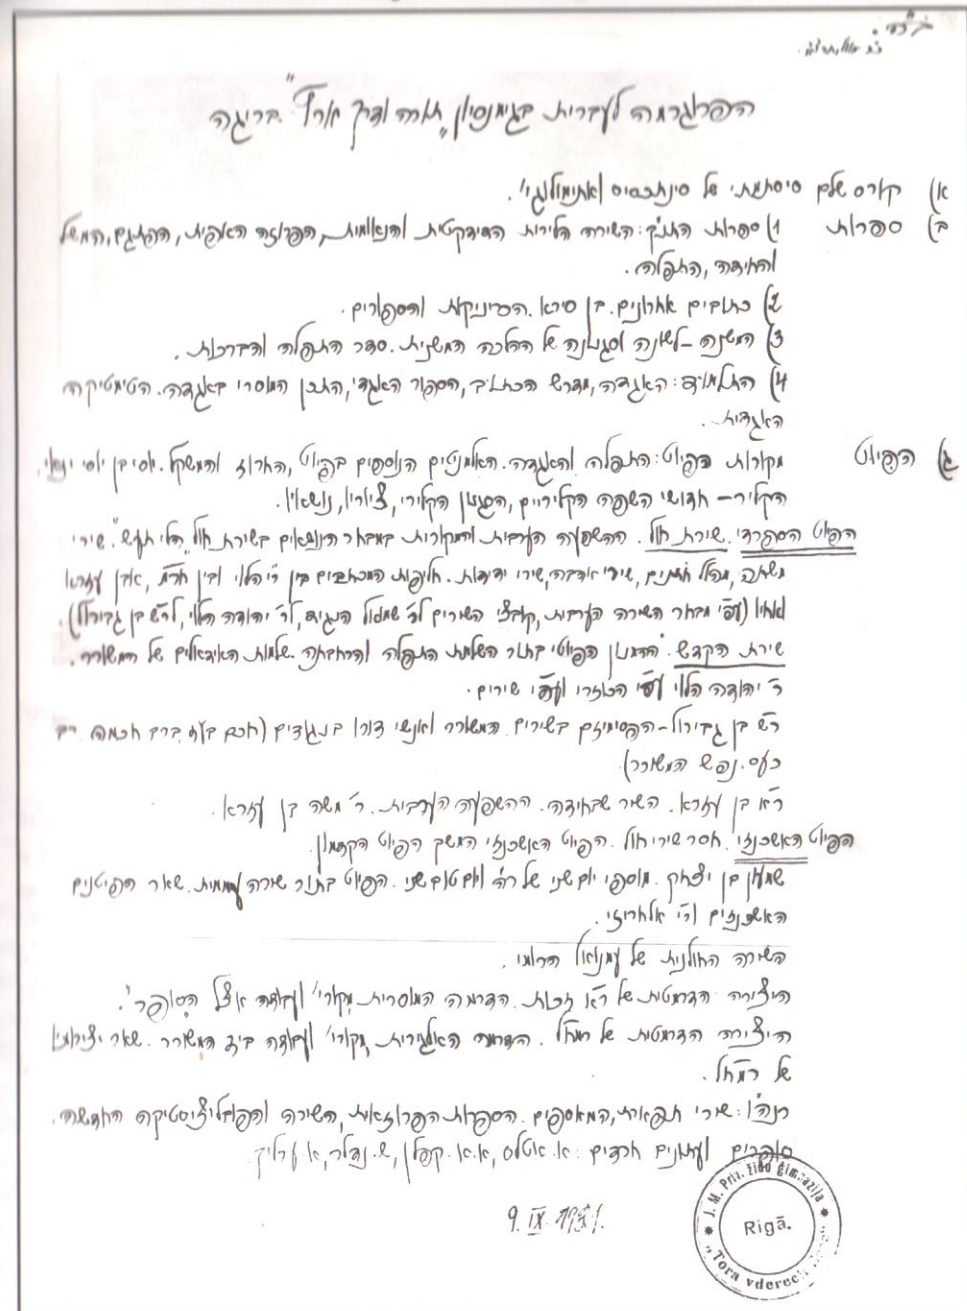 ב"ה
הפרוגרמה לעברית בגימנסיון „תורה ודרך ארץ" בריגה
א) קורס שלם סיסתמתי של סינתכסיס ואתימולוגי'.
ב) ספרות 1) ספרות התנ"ך: השירה הלירית הדידקטית והנאומית, הפרוזה האפית, הפתגם, המשל
והחידה, התפלה.
2) כתובים אחרונים. בן סירא. והספורים.
3) המשנה – לשונה וסגנונה של ההלכה המשנית. סדר התפלה והברכות.
4) התלמוד: האגדה, מדרש הכתוב, הספור האגדי, התכן המוסרי באגדה. הטימטיקה
האגדית.
ג) הפיוט מקורות הפיוט: התפלה והאגדה. האלמנטים הנוספים בפיוט, החרוז והמשקל. יוסי בן יוסי ינאי,
הקליר – חדושי השפה הקליריים, הסגנון הקלירי, ציוריו, נושאיו.
הפיוט הספרדי. שירת חול. ההשפעה הערבית והמקורית במבחר הנושאים בשירת חול שירי
משתה, מהלל חתנים, שירי אהבה, שירי ידידות. חליפות המכתבים בין ר"י הלוי ובין אבן עזרא
ואחיו (עפ"י מבחר השירה העברית, קובצי השירים לר' שמואל הנגיד, לר' יהודה הלוי, לר"ש בן גבירול).
שירת הקדש. ההמנון הפיוטי בתור השלמת התפלה והרחבתה. שלמות האידאלים של המשורר.
ר' יהודה הלוי עפ"י הכוזרי ועפ"י שירים.
רש"ב בן גבירול – הפסימיזם בשירים. המשורר ואנשי דורו בנגודים (חכם ברב חכמה רב
כעס. נפש המשורר)
ר"א בן עזרא. השיר שבחידה. ההשפעה הערבית. ר' משה בן עזרא.
הפיוט האשכנזי. חסר שירי חול. הפיוט האשכנזי המשך הפיוט הקדמון.
שמעון בן יצחק. מוספי יום שני של ר"ה ויום טוב שני. הפיוט בתור שירה עממית. שאר הפיטנים
האשכנזים ור"י אלחריזי.
השירה החולנית של עמנואל הרומי.
היצירה הדרמטית של ר"מ זכות. הדרמה המוסרית מקורי' ועבודה אצל הסופר.
היצירה הדרמטית של רמח"ל. הדרמה האלגורית מקורי' ועבודה ביד המשורר. שאר יצירותיו
של רמח"ל.
רנה"ו: שירי תפארת, המאספים. הספרות הפרוזאית, השירה והפובליציסטיקה החדשה.
סופרים ועתונים חרדים: א.א. קפלן, ש. נדלר, א. ערליך.
9. IX. 1931.
J. M. Priv. žīdu ģimnazija
Rīgā.
"Tora vderec